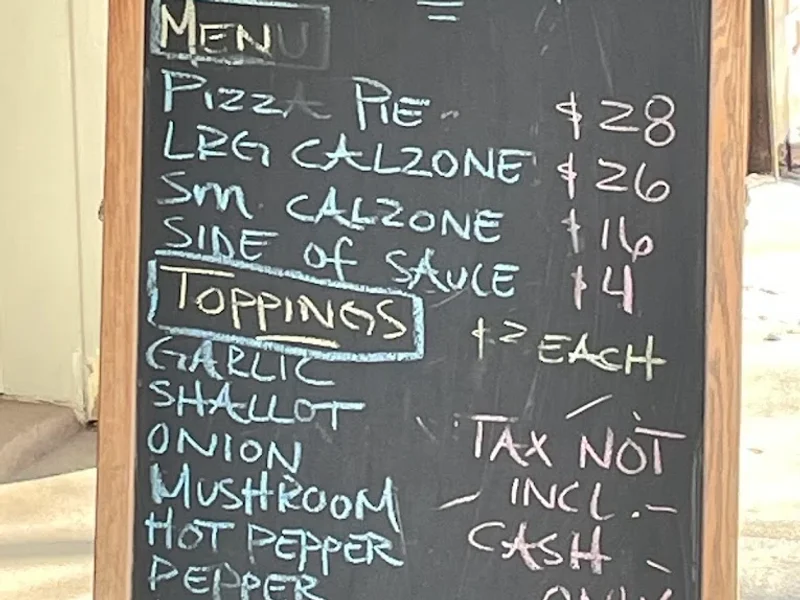 MENU
PIZZA PIE $28
LRG CALZONE $26
Sm CALZONE $16
SIDE OF SAUCE $4
TOPPINGS $2 EACH
GARLIC
SHALLOT
ONION
MUSHROOM
HOT PEPPER
PEPPER
TAX NOT
INCL.
CASH
ONLY